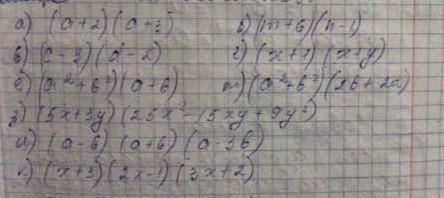 а) (a+2)(a+3) б) (m+6)(n-1)
в) (c-3)(d-2) г) (x+y)(x+y)
е) (a²+b²)(a+b) ж) (a²+b²)(2b+2a)
з) (5x+3y)(25x²-15xy+9y²)
и) (a-b)(a+b)(a-3b)
к) (x+3)(2x-1)(3x+2)